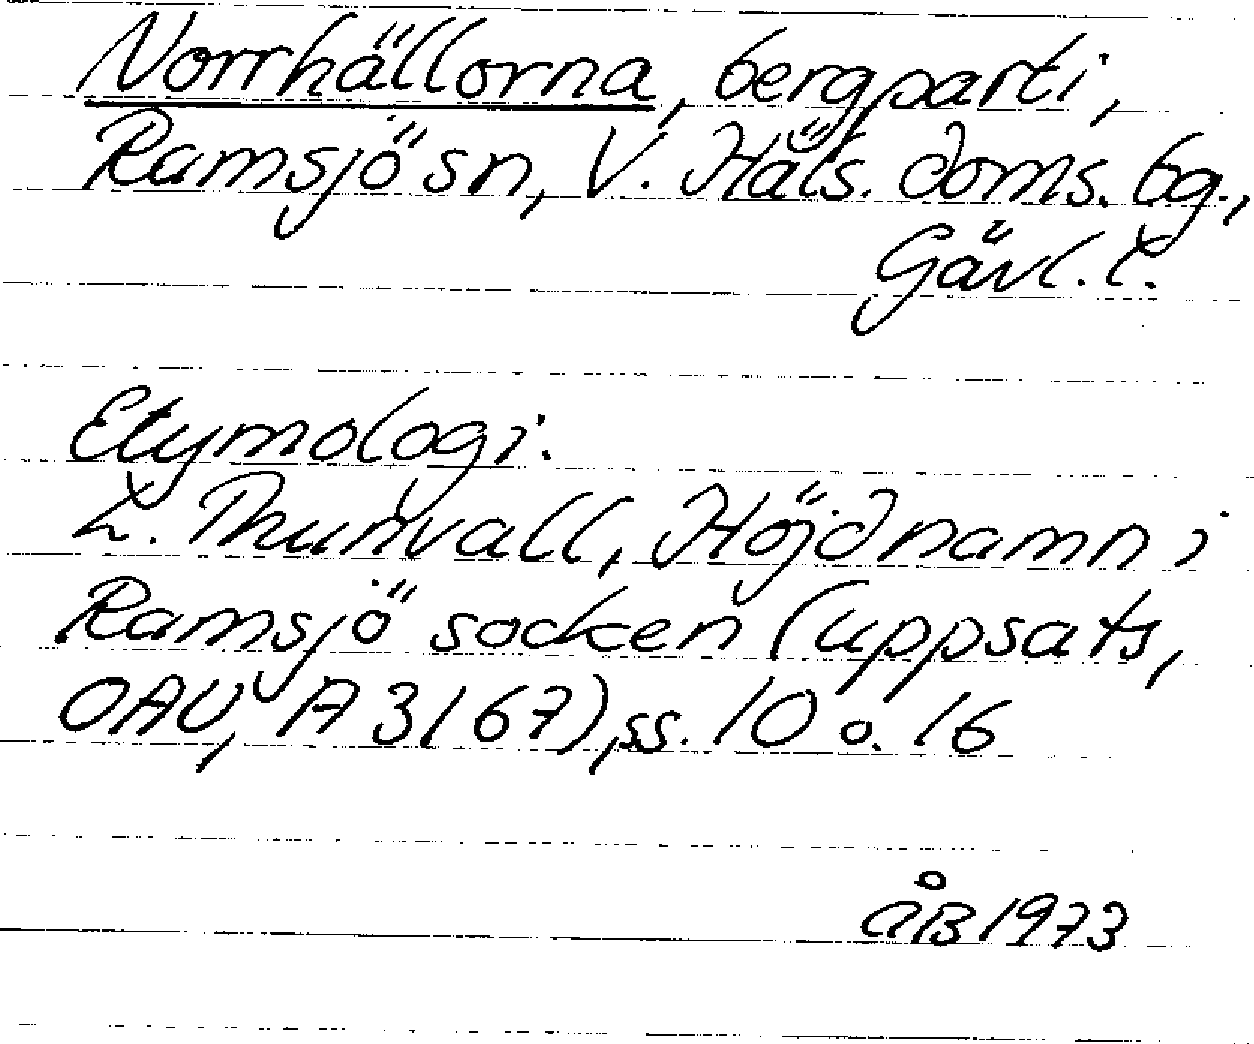 Norrhällorna, bergparti,
Ramsjö sn, V. Häls. doms. bg.,
Gävl. l.
Etymologi.
L. Thunvall, Höjdnamn i
Ramsjö socken (uppsats,
OAU, A 3167), ss. 10 o. 16
ÅB 1973